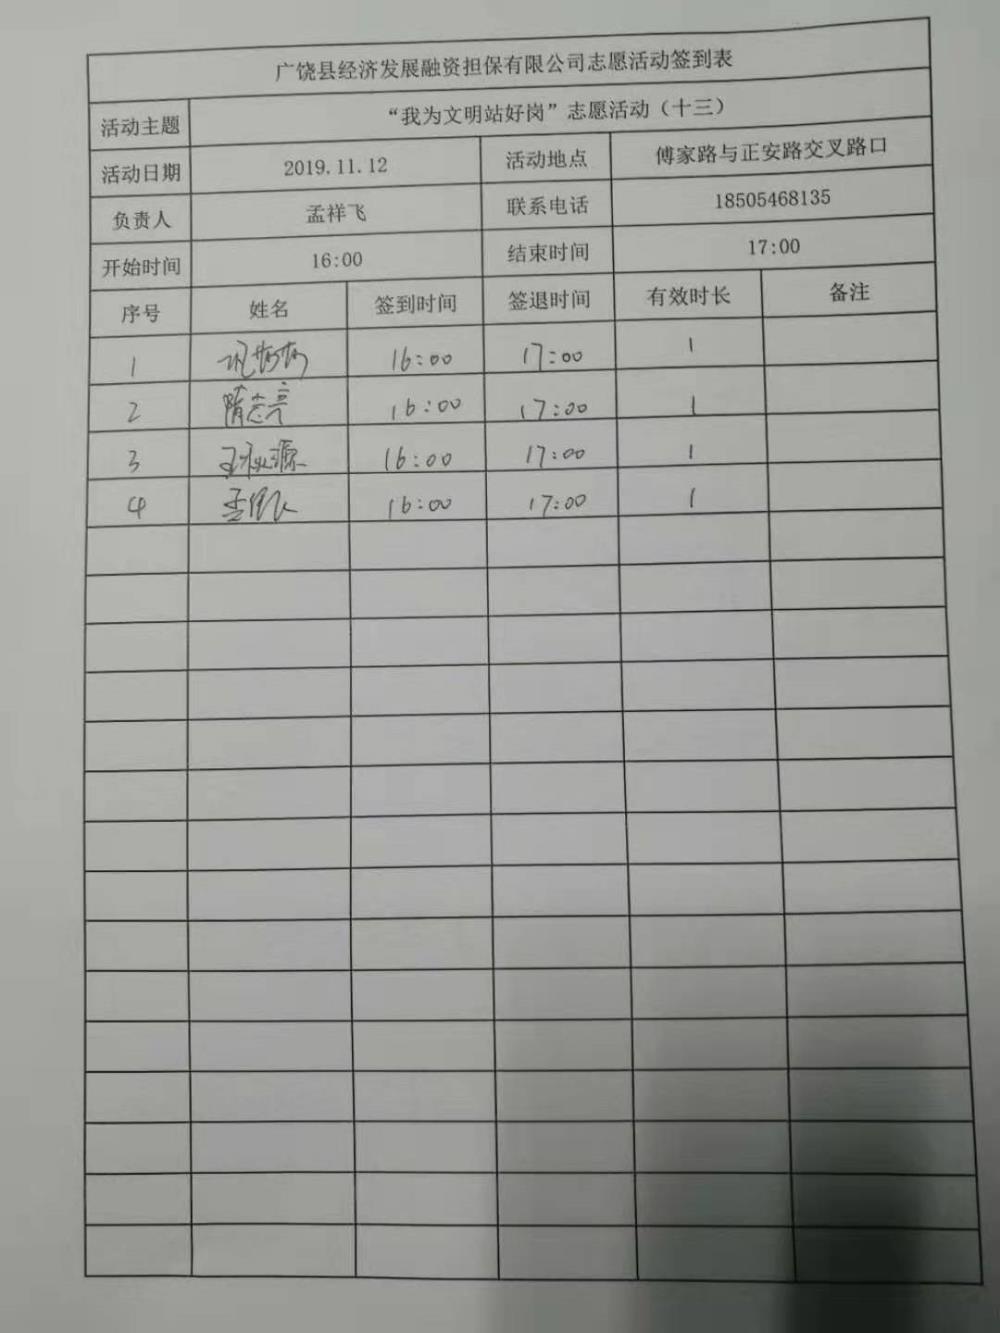 广饶县经济发展融资担保有限公司志愿活动签到表
活动主题 “我为文明站好岗”志愿活动（十三）
活动日期 2019.11.12 活动地点 傅家路与正安路交叉路口
负责人 孟祥飞 联系电话 18505468135
开始时间 16:00 结束时间 17:00
序号 姓名 签到时间 签退时间 有效时长 备注
1 16:00 17:00 1
2 隋志亮 16:00 17:00 1
3 16:00 17:00 1
4 16:00 17:00 1